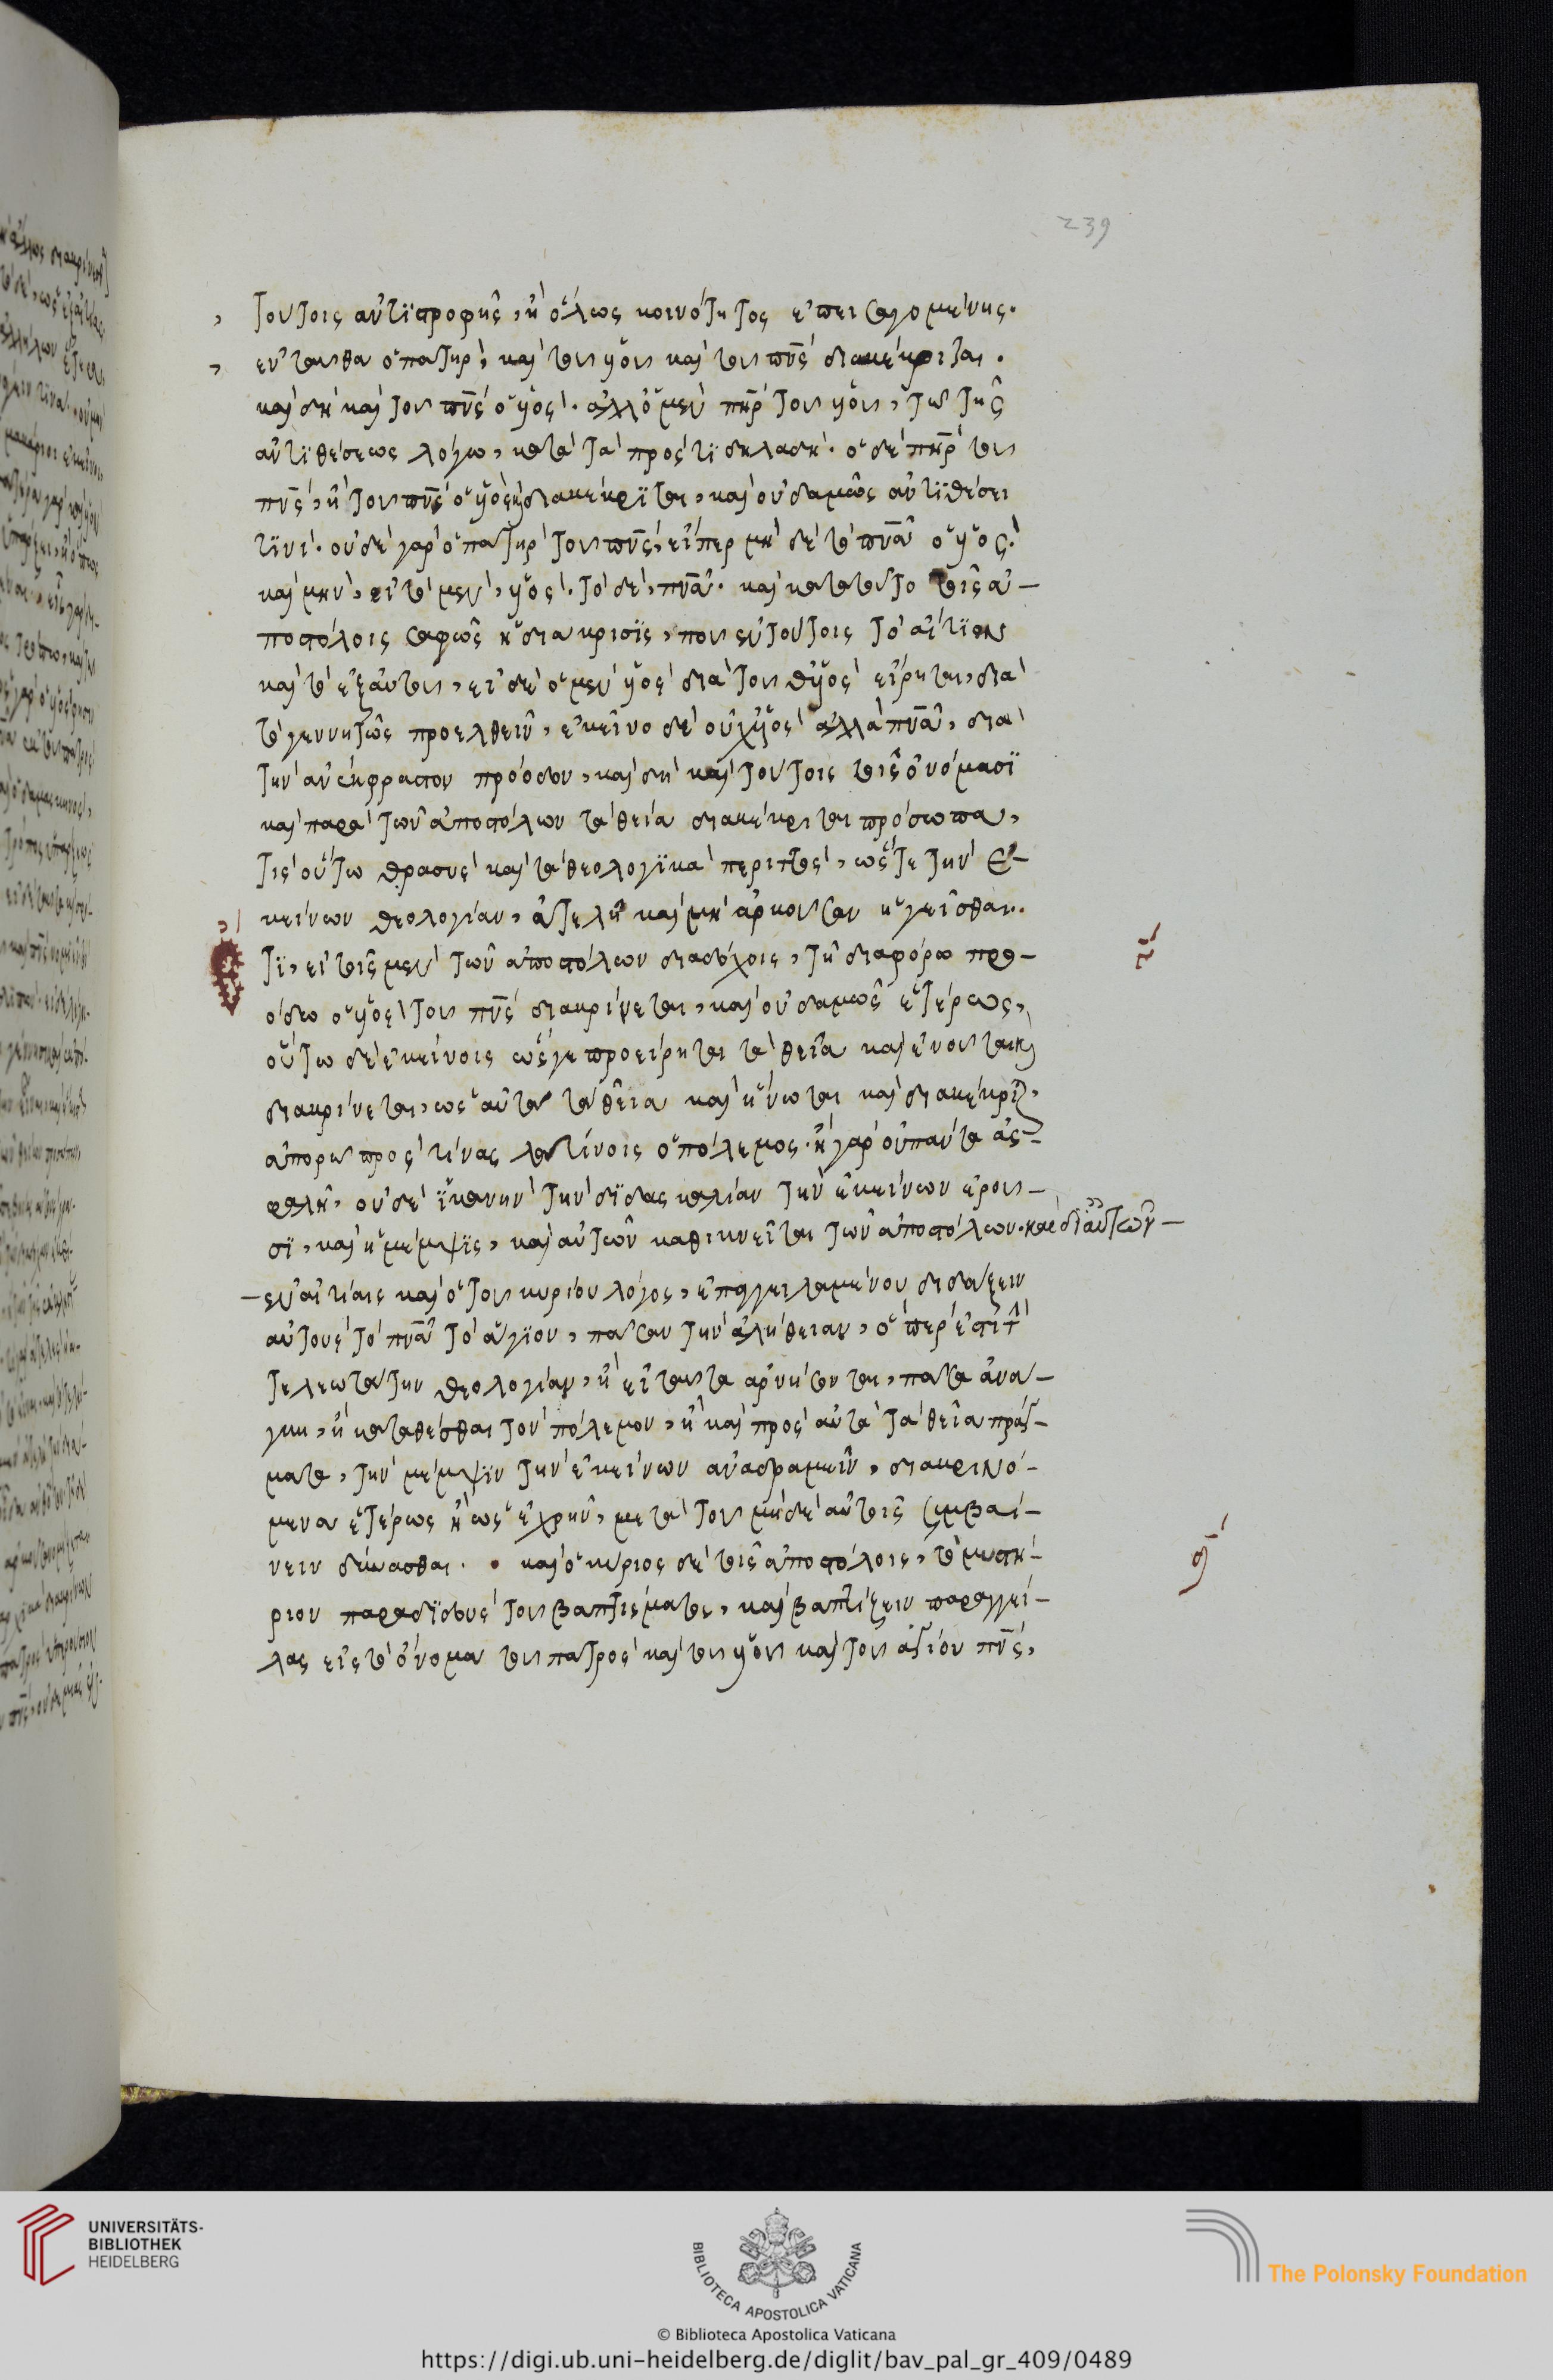 239
τούτοις ἀντιστροφῆς, ἢ ὅλως κοινότητος ἐπεισαγομένης.
ἐνταῦθα ὁ πατὴρ, καὶ τοῦ υἱοῦ καὶ τοῦ πνς διακέκριται.
καὶ δὴ καὶ τοῦ πνς ὁ υἱός. ἀλλ' ὁ μὲν πηρ τοῦ υἱοῦ, τῷ τῆς
ἀντιθέσεως λόγω, κατὰ τὰ πρός τι δηλαδή. ὁ δὲ πηρ τοῦ
πνς, ἢ τοῦ πνς ὁ υἱὸς διακέκριται, καὶ οὐδαμῶς ἀντιθέσει
τινί. οὐδὲ γὰρ ὁ πατὴρ τοῦ πνς, εἴπερ μὴ δὲ τὸ πνα ὁ υἱός.
καὶ μὴν, εἰ τὸ μὲν, υἱός. τὸ δὲ, πνα. καὶ κατὰ τοῦτο τοῖς ἀ-
ποστόλοις σαφῶς ἡ διάκρισις, ποῦ ἐν τούτοις τὸ αἴτιον
καὶ τὸ ἐξ αὐτοῦ, εἰ δὲ ὁ μὲν υἱὸς διὰ τοῦ θυ υἱὸς εἴρηται, διὰ
τὸ γεννητῶς προελθεῖν, ἐκεῖνο δὲ οὐχ υἱὸς ἀλλὰ πνα, διὰ
τὴν ἀνέκφραστον πρόοδον, καὶ δὴ καὶ τούτοις τοῖς ὀνόμασι
καὶ παρὰ τῶν ἀποστόλων τὰ θεία διακέκριται πρόσωπα,
τίς οὕτω θρασὺς καὶ τὰ θεολογικὰ περιττὸς, ὥς τε τὴν ἐ-
κείνων θεολογίαν, ἀτελῆ καὶ μὴ ἀρκοῦσαν ἡγεῖσθαι.
τί, εἰ τοῖς μὲν τῶν ἀποστόλων διαδόχοις, τῆ διαφόρω προ-
όδω ὁ υἱὸς τοῦ πνς διακρίνεται, καὶ οὐδαμῶς ἑτέρως,
οὕτω δὲ ἐκείνοις ὥς γε προείρηται τὰ θεῖα καὶ ἑνοῦται καὶ
διακρίνεται, ὡς αὐτὰ τὰ θεῖα καὶ ἥνωται καὶ διακέκριται.
ἀπορῶ πρὸς τίνας λατίνοις ὁ πόλεμος. ἢ γὰρ οὐ πάντα ἀσ-
φαλῆ, οὐδὲ ἱκανὴν τὴν διδασκαλίαν τὴν ἐκείνων ἐροῦ-
σι, καὶ ἡ μέμψις, καὶ αὐτῶν καθικνεῖται τῶν ἀποστόλων. καὶ δι' αὐτῶν-
-ἐν αἰτίαις καὶ ὁ τοῦ κυρίου λόγος, ἐπαγγειλαμένου διδάξειν
αὐτοὺς τὸ πνα τὸ ἅγιον, πᾶσαν τὴν ἀλήθειαν, ὅπερ ἐστὶ τὴν
τελεωτάτην θεολογίαν, ἢ εἰ ταῦτα ἀρνήσονται, πᾶσα ἀνά-
γκη, ἢ καταθέσθαι τὸν πόλεμον, ἢ καὶ πρὸς αὐτὰ τὰ θεῖα πράγ-
ματα, τὴν μέμψιν τὴν ἐκείνων ἀναδραμεῖν, διακρινό-
μενα ἑτέρως ἢ ὡς ἐχρῆν, μετὰ τοῦ μηδὲ αὐτοῖς συμβαί-
νειν δύνασθαι. καὶ ὁ κύριος δὲ τοῖς ἀποστόλοις, τὸ μυστή-
ριον παραδιδοὺς τοῦ βαπτίσματος, καὶ βαπτίζειν παραγγεί-
λας εἰς τὸ ὄνομα τοῦ πατρὸς καὶ τοῦ υἱοῦ καὶ τοῦ ἁγίου πνς,
UNIVERSITÄTS-
BIBLIOTHEK
HEIDELBERG
BIBLIOTECA APOSTOLICA VATICANA
The Polonsky Foundation
© Biblioteca Apostolica Vaticana
https://digi.ub.uni-heidelberg.de/diglit/bav_pal_gr_409/0489